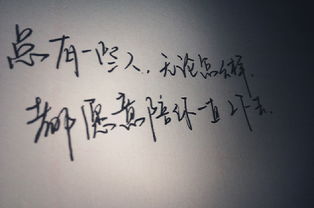 总有一些人，无论怎么样，
都愿意陪你一直下去.